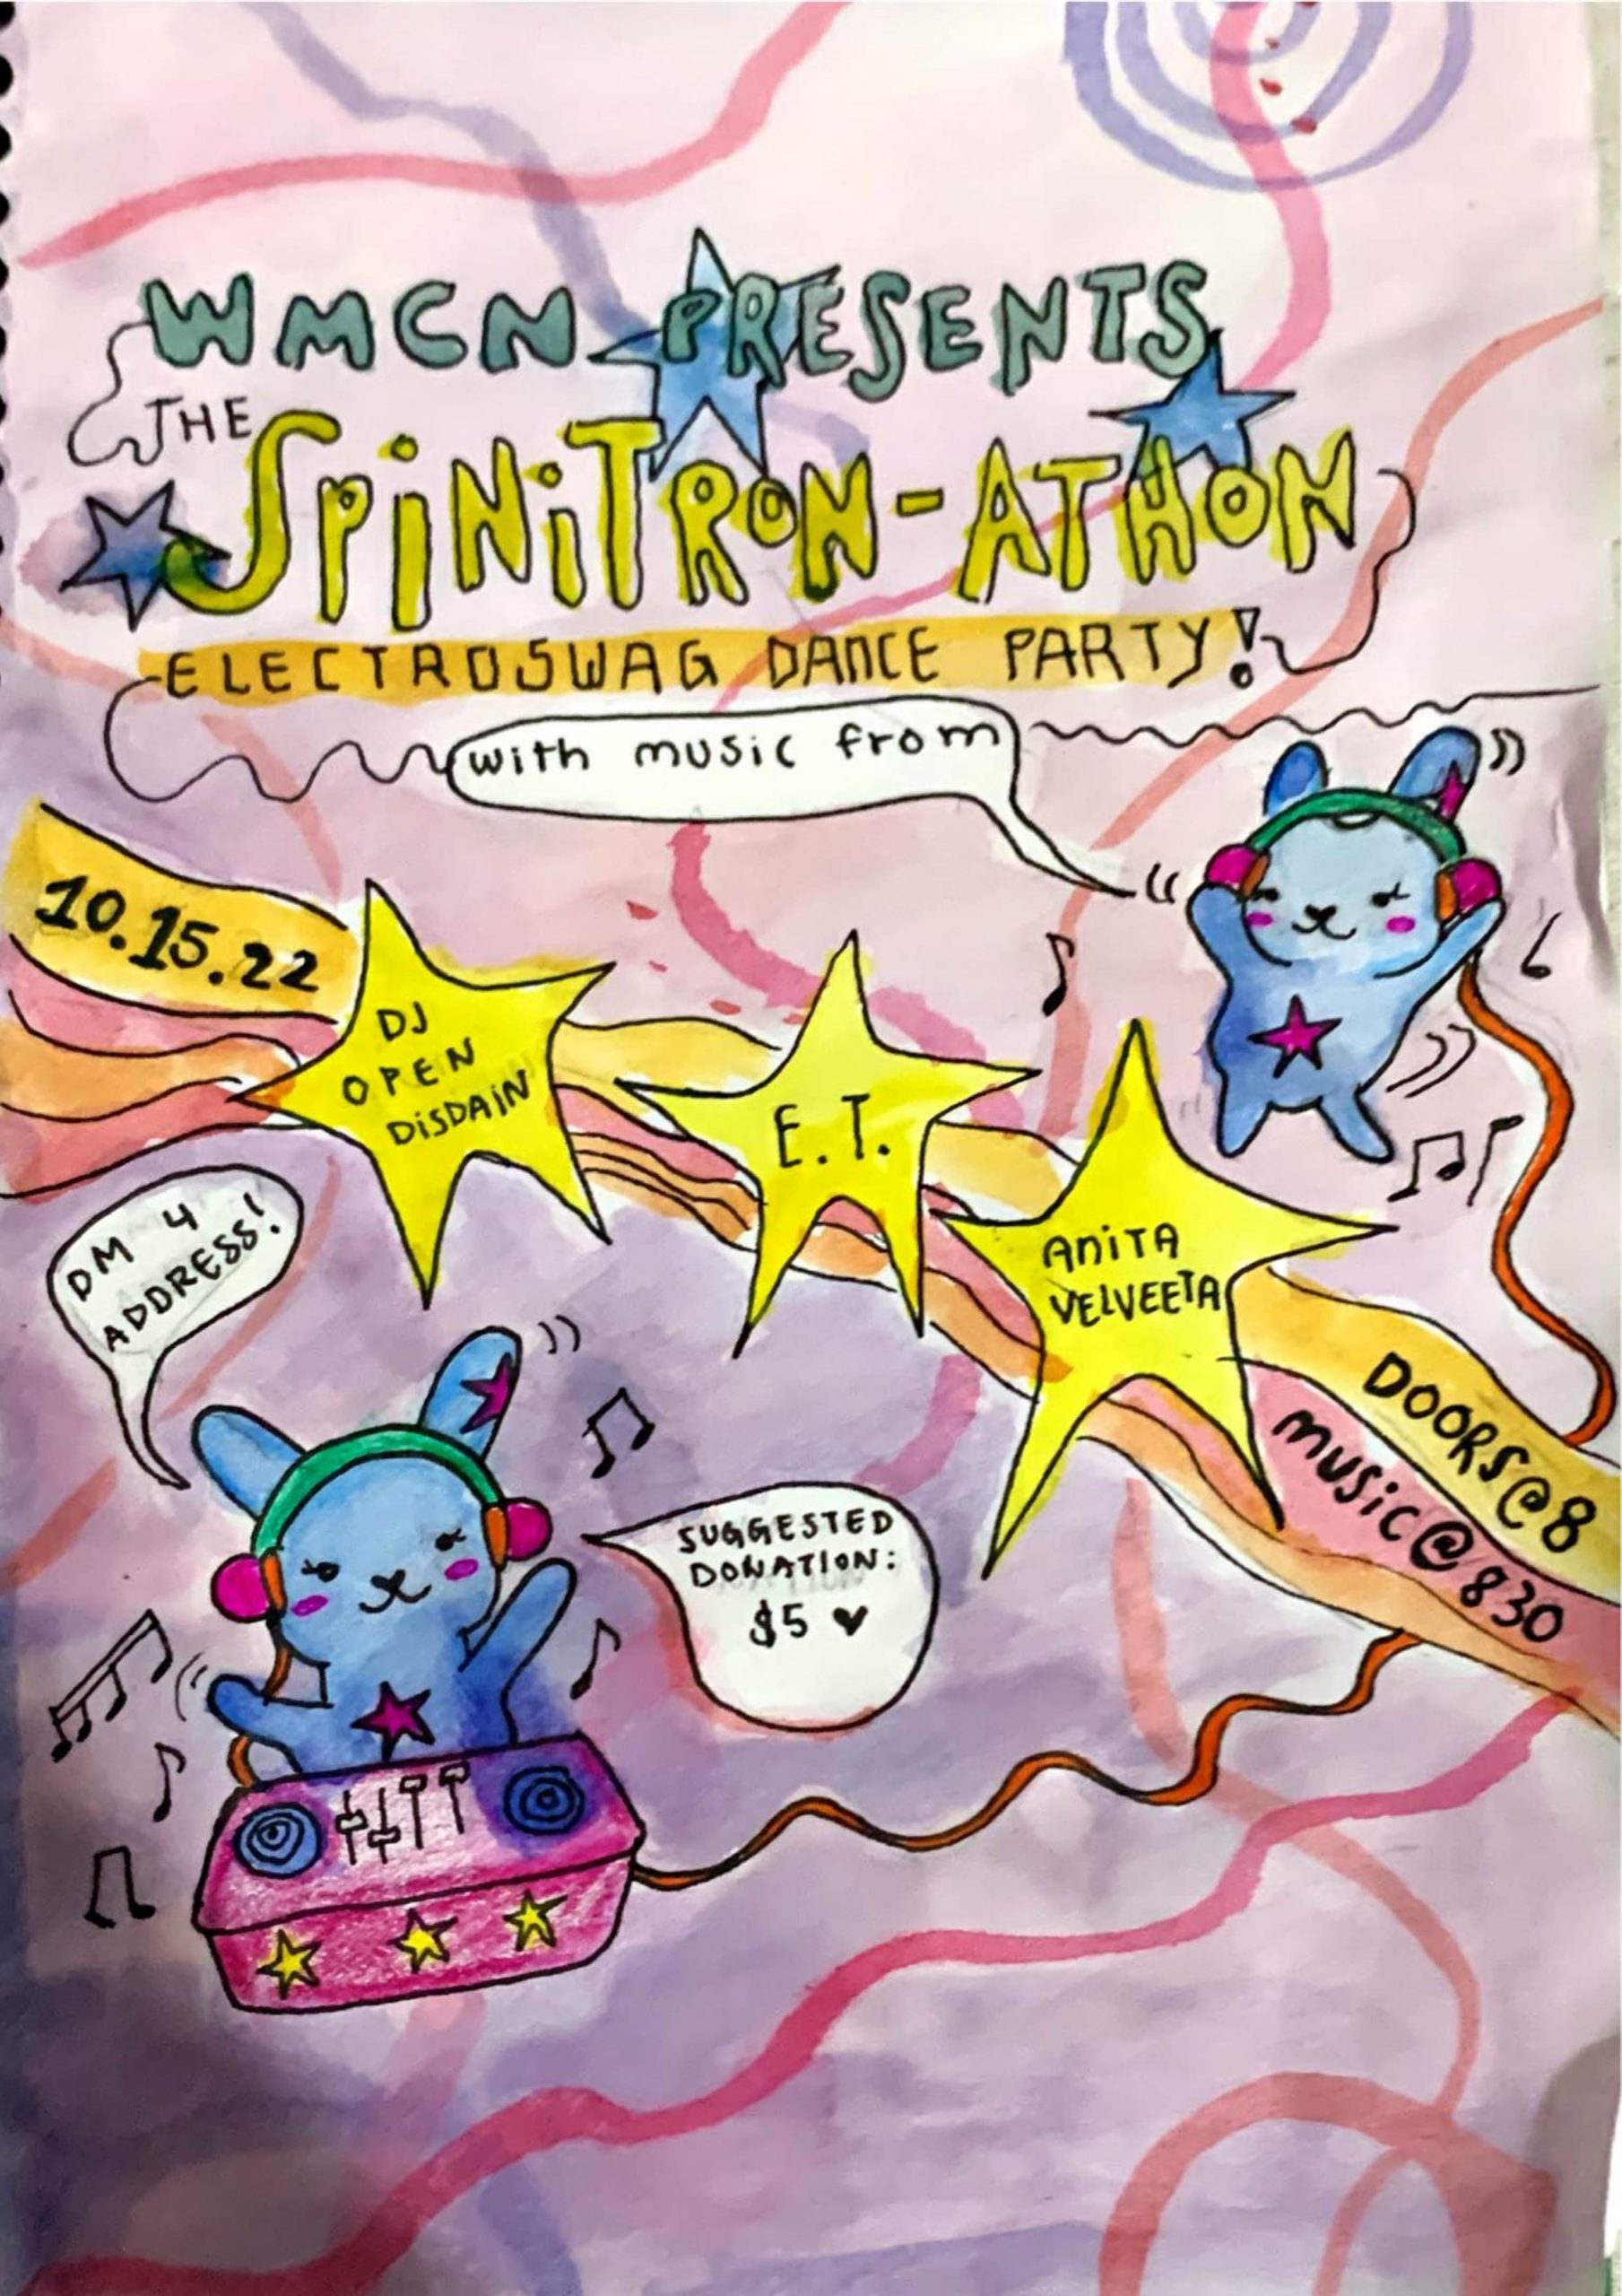 WMCN PRESENTS
THE
SPiNiTRON-ATHON
ELECTROSWAG DANCE PARTY!
with music from
10.15.22
DJ
OPEN
DiSDAiN
E.T.
ANiTA
VELVEETA
DM 4
ADDRESS!
DOORS@8
music@830
SUGGESTED
DONATION:
$5 ♥